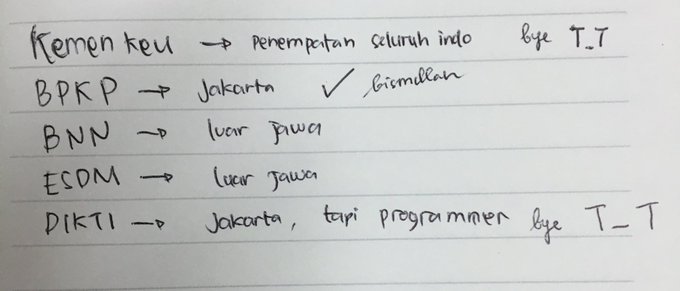 Kemenkeu → Penempatan seluruh indo bye T_T
BPKP → Jakarta ✓ bismillah
BNN → luar jawa
ESDM → luar jawa
DIKTI → Jakarta, tapi programmer bye T_T